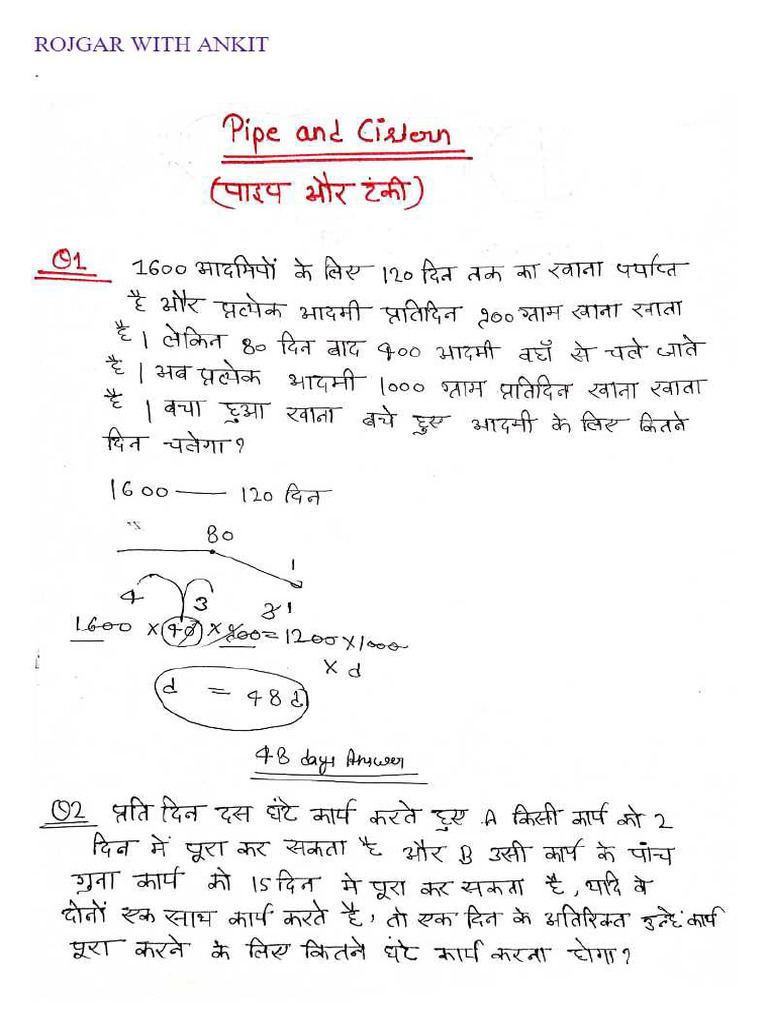 ROJGAR WITH ANKIT
.
Pipe and Cistern
(पाइप और टंकी)
Q1 1600 आदमियों के लिए 120 दिन तक का खाना पर्याप्त
है और प्रत्येक आदमी प्रतिदिन 900 ग्राम खाना खाता
है। लेकिन 80 दिन बाद 400 आदमी वहाँ से चले जाते
है। अब प्रत्येक आदमी 1000 ग्राम प्रतिदिन खाना खाता
है। बचा हुआ खाना बचे हुए आदमी के लिए कितने
दिन चलेगा?
1600 — 120 दिन
80
1
4 3
3 1
1600 × 40 × 900 = 1200 × 1000
× d
d = 48 d
48 days Answer
Q2 प्रति दिन दस घंटे कार्य करते हुए A किसी कार्य को 2
दिन में पूरा कर सकता है और B उसी कार्य के पांच
गुना कार्य को 15 दिन मे पूरा कर सकता है, यदि वे
दोनों एक साथ कार्य करते है, तो एक दिन के अतिरिक्त उन्हें कार्य
पूरा करने के लिए कितने घंटे कार्य करना होगा?